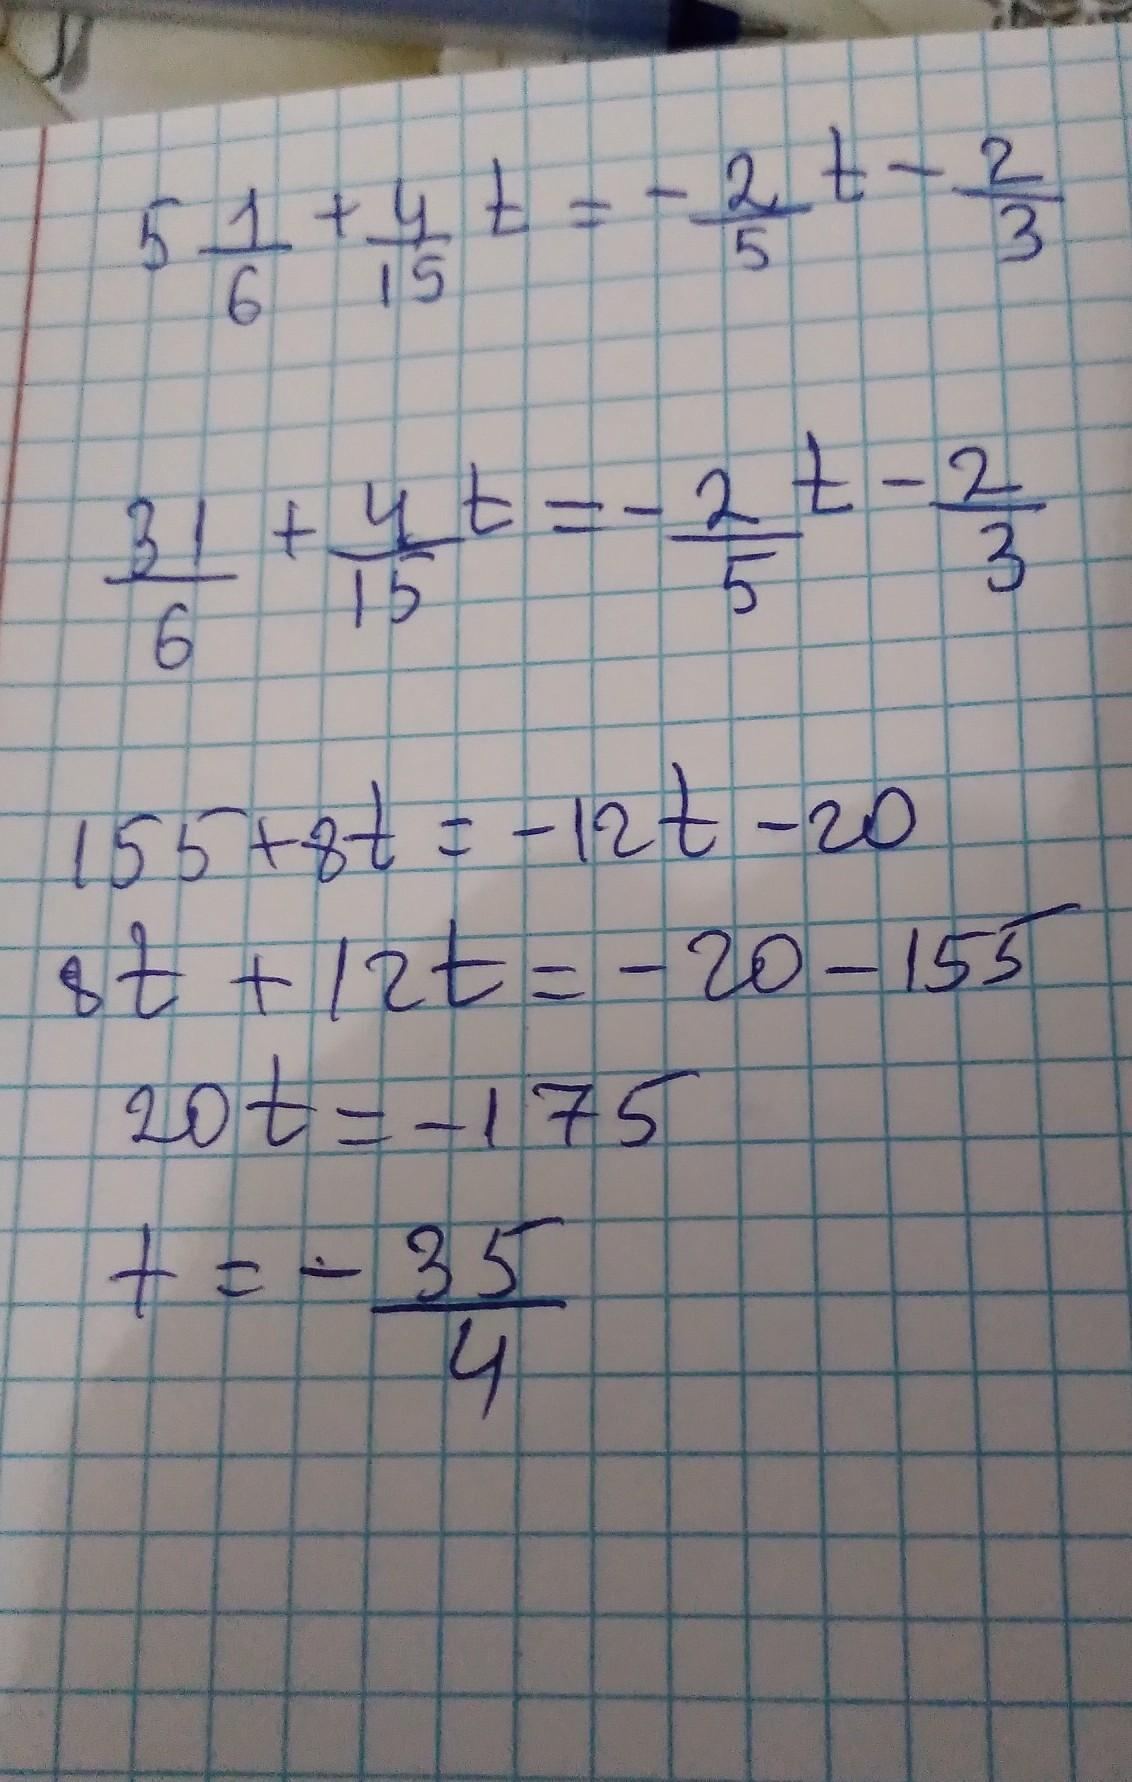 5 1/6 + 4/15 t = - 2/5 t - 2/3
31/6 + 4/15 t = - 2/5 t - 2/3
155 + 8t = -12t - 20
8t + 12t = -20 - 155
20t = -175
t = - 35/4